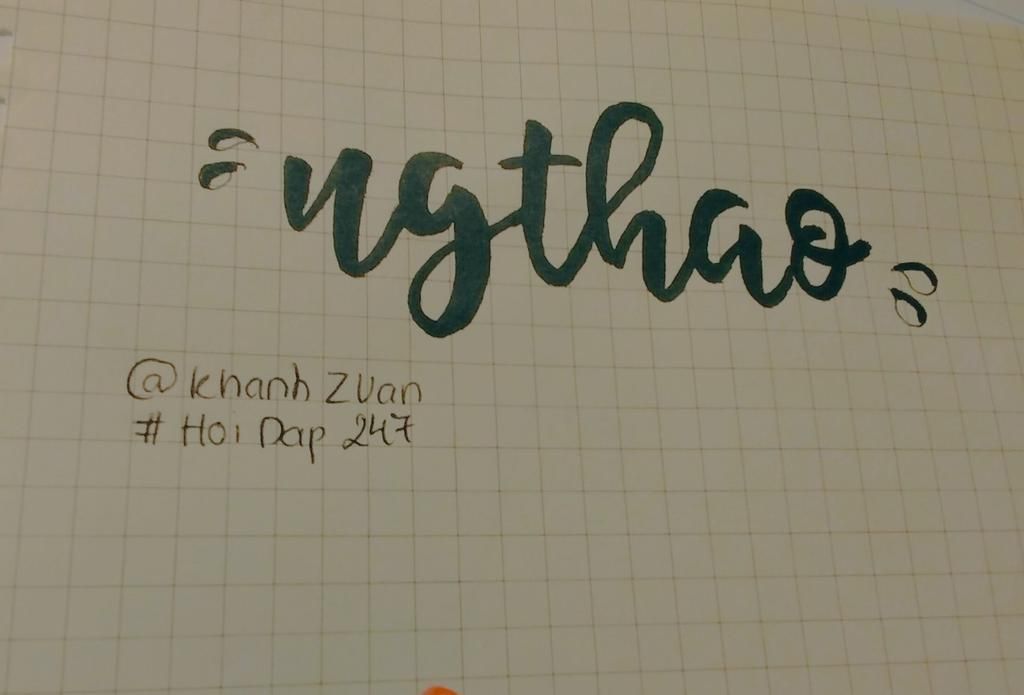 ngthao
@ Khanh Zuan
# Hoi Dap 247